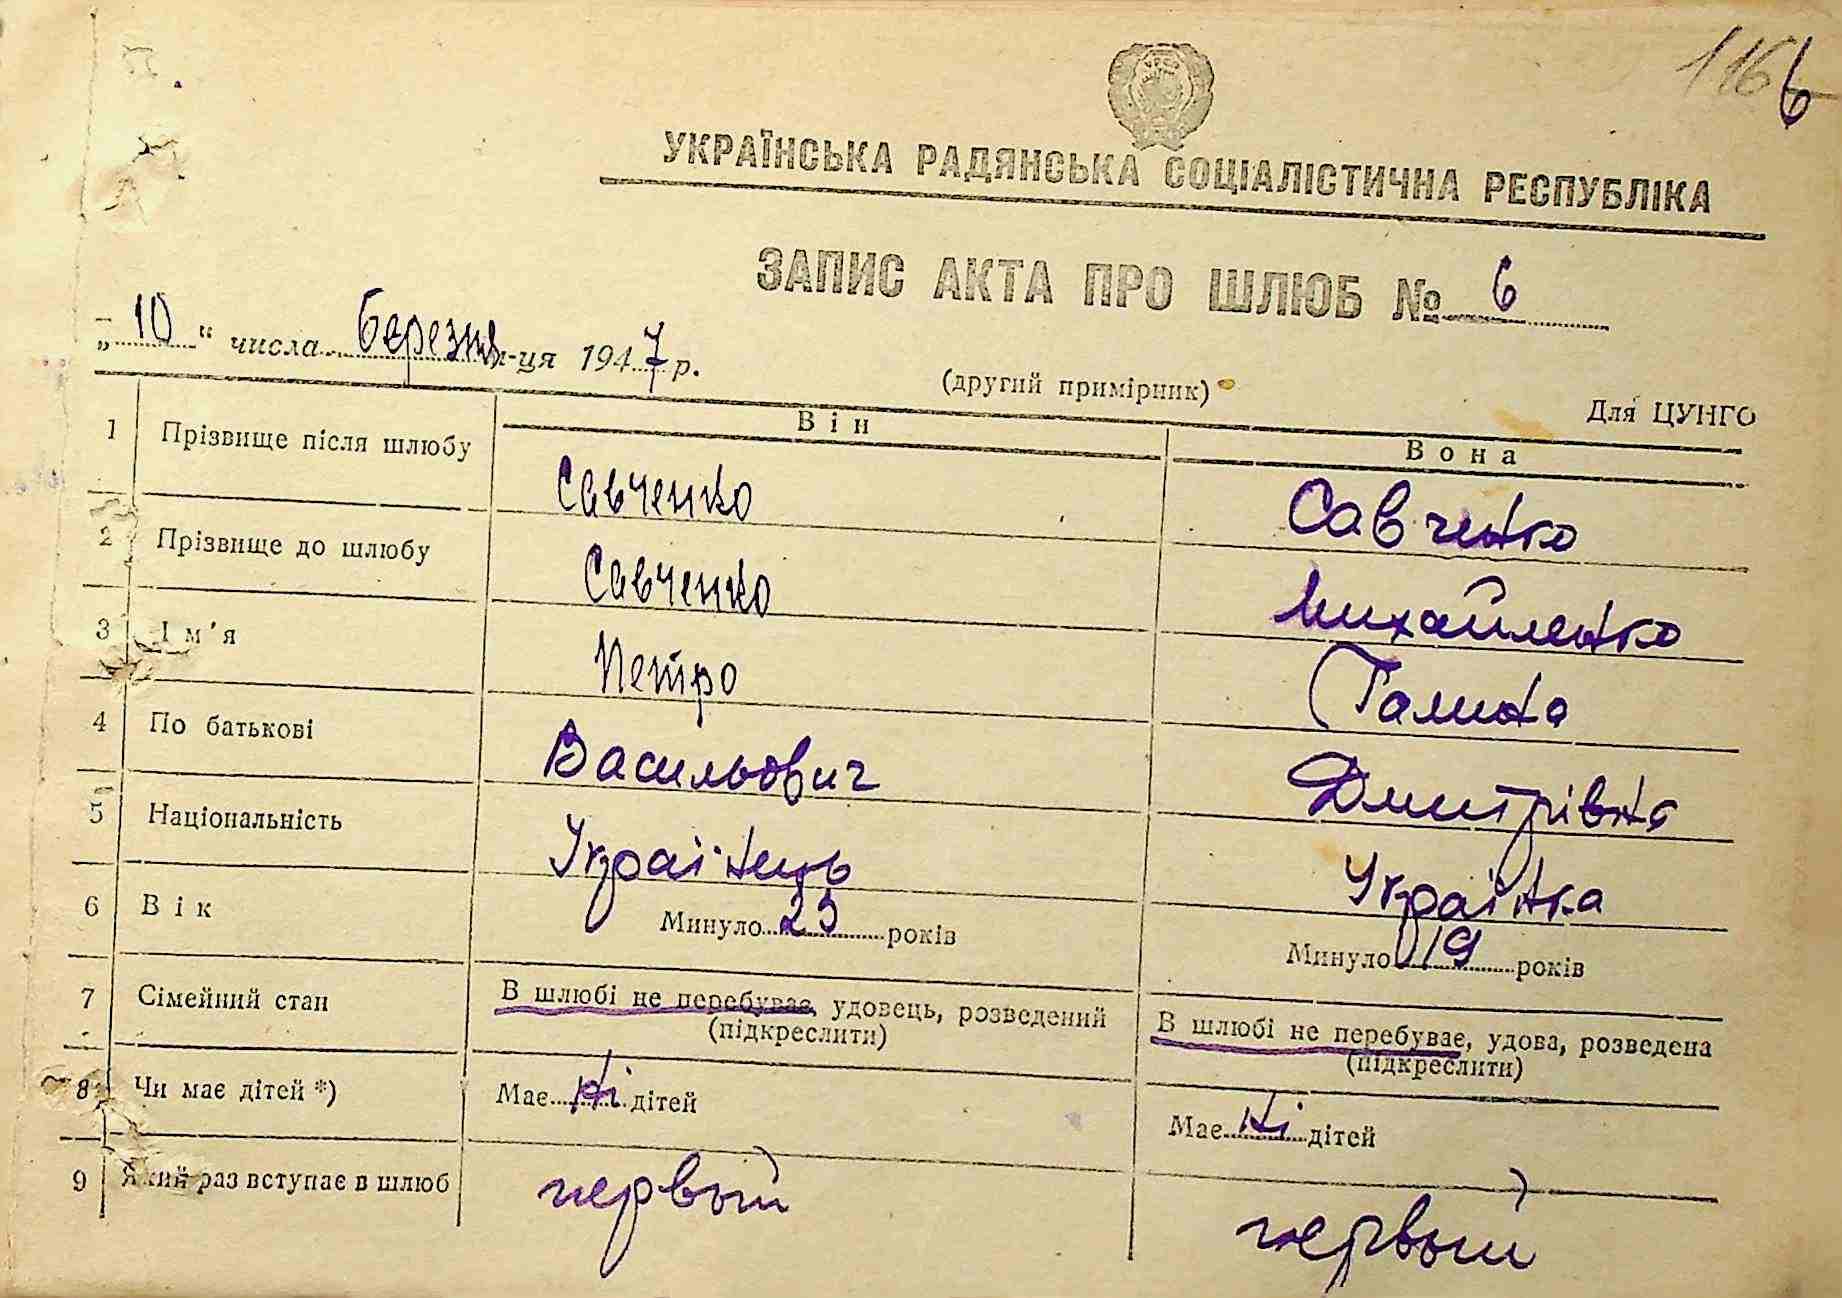 116 6
УКРАЇНСЬКА РАДЯНСЬКА СОЦІАЛІСТИЧНА РЕСПУБЛІКА
ЗАПИС АКТА ПРО ШЛЮБ № 6
„10“ числа березня м-ця 1947 р.
(другий примірник)
Для ЦУНГО
Він Вона
1 Прізвище після шлюбу Савченко Савченко
2 Прізвище до шлюбу Савченко Михайленко
3 Ім'я Петро Галина
4 По батькові Васильович Дмитрівна
5 Національність Українець Українка
6 Вік Минуло 23 років Минуло 19 років
7 Сімейний стан В шлюбі не перебуває, удовець, розведений (підкреслити) В шлюбі не перебуває, удова, розведена (підкреслити)
8 Чи має дітей *) Має ні дітей Має ні дітей
9 Який раз вступає в шлюб первый первый